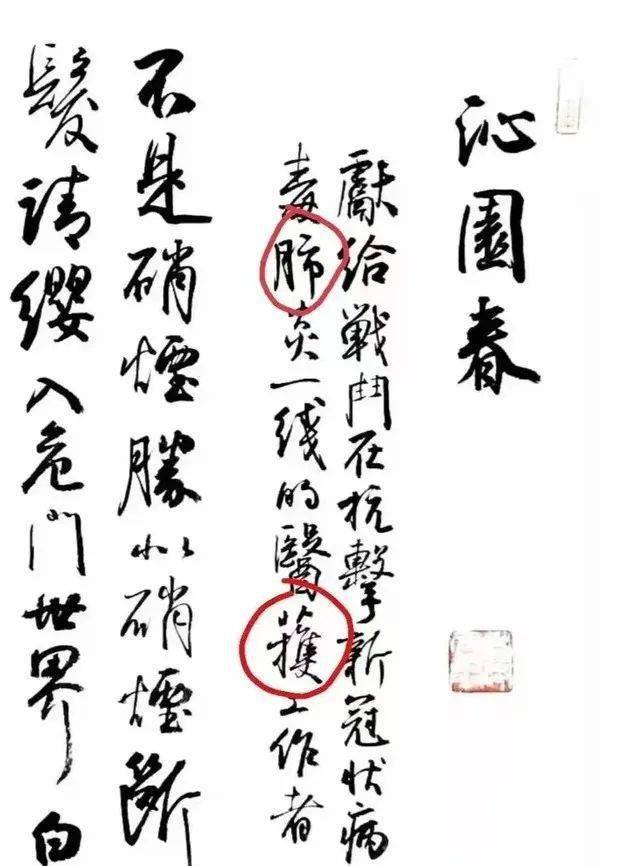 沁園春
獻給戦鬥在抗擊新冠狀病
毒肺炎一线的醫獲工作者
不是硝煙勝似硝煙斷
髮請纓入危門世界白